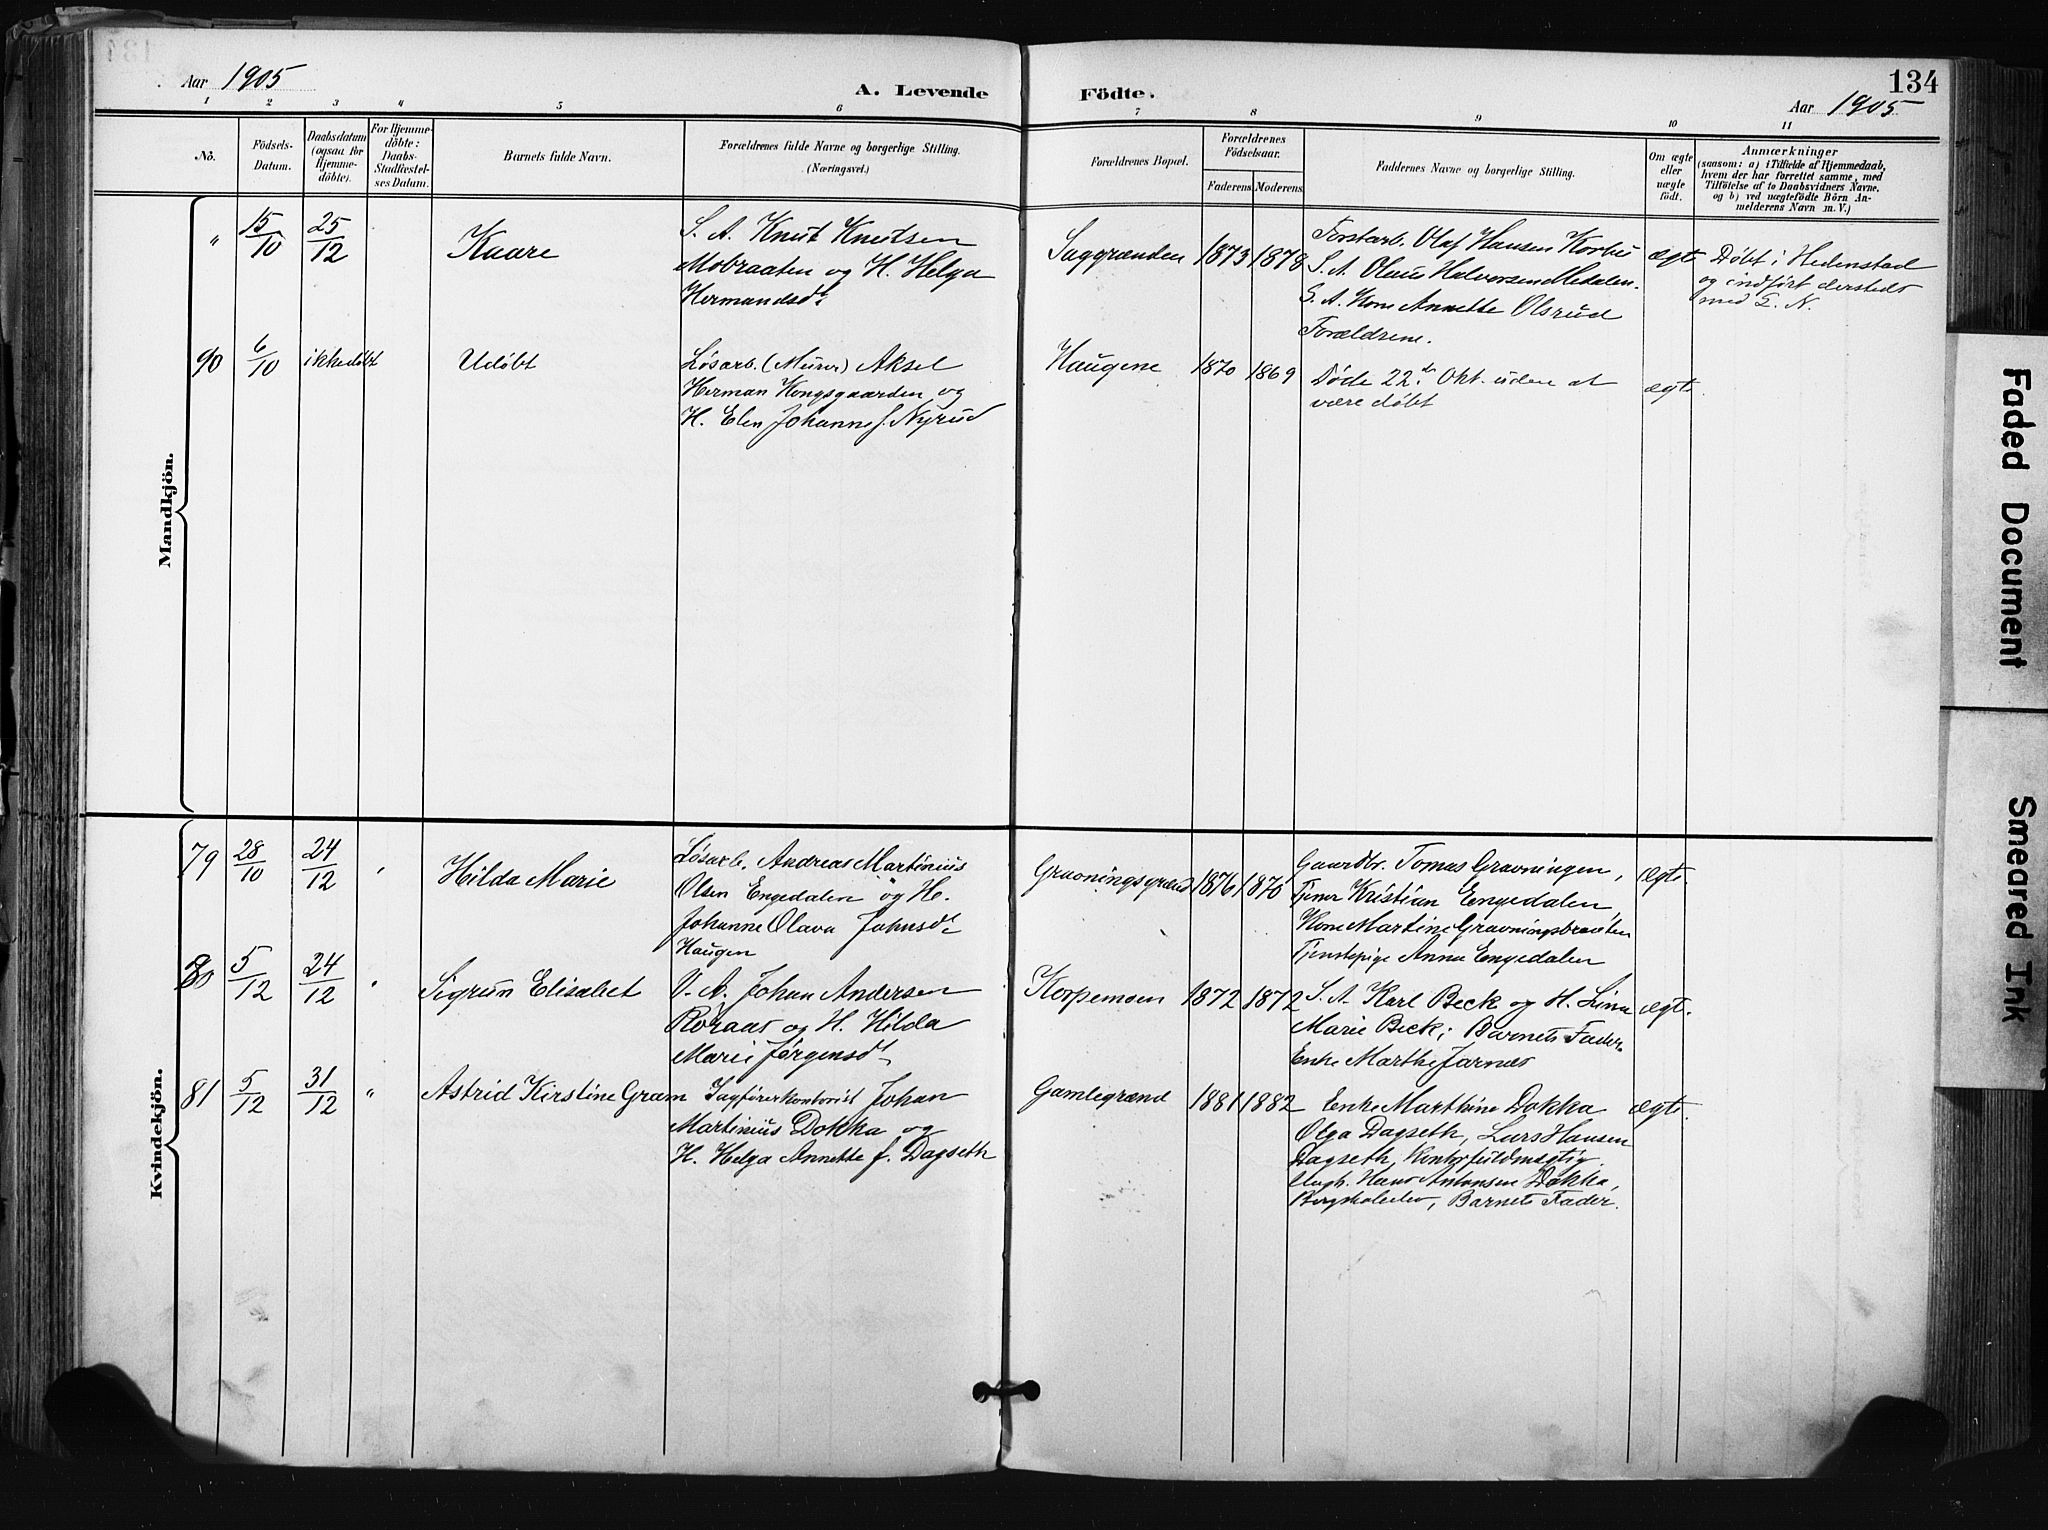 134
Aar 1905
A. Levende Födte.
Aar 1905
1 2 3 4 5 6 7 8 9 10 11
No.
Födsels-
Datum.
Daabsdatum
(ogsaa for
Hjemme-
döbte).
For Hjemme-
döbte:
Daabs-
Stadfæstel-
ses Datum.
Barnets fulde Navn.
Forældrenes fulde Navne og borgerlige Stilling.
(Næringsvei.)
Forældrenes Bopæl.
Forældrenes
Födselsaar.
Faderens Moderens
Faddernes Navne og borgerlige Stilling.
Om ægte
eller
uægte
födt.
Anmærkninger
(saasom: a) i Tilfælde af Hjemmedaab,
hvem der har forrettet samme, med
Tilföielse af to Daabsvidners Navne,
og b) ved uægtefödte Börn An-
melderens Navn m. V.)
Mandkjön.
" 15/10 25/12
Kaare
S. A. Knut Knutsen
Mobraaten og H. Helga
Hermandsdt.
Saggrænden 1873 1878
Forstarb. Olaf Hansen Korbu
S. A. Olaus Halvorsen Medalen.
S. A. Kone Annette Olsrud
Forældrene.
ægte
Døbt i Hedenstad
og indført dersteds
med E. N.
90 6/10 ikke døbt
Udøbt
Løsarb. (Murer) Aksel
Herman Kongsgaarden og
H. Elen Johanne f. Nyrud
Haugene 1870 1869
Døde 22de Okt. uden at
være døbt
ægte
Kvindekjön.
79 28/10 24/12 "
Hilda Marie
Løsarb. Andreas Martinius
Olsen Engedalen og H.
Johanne Olava Johnsdt.
Haugen
Gravningsgrænd 1876 1870
Gaardbr. Tomas Gravningen,
Tjener Kristian Engedalen,
Kone Martine Gravningsbraaten
Tjenstepige Anna Engedalen
ægte.
80 5/12 24/12 "
Sigrun Elisabet
V. A. Johan Andersen
Roraas og H. Hilda
Marie Jørgensdt.
Korpemoen 1872 1872
S. A. Karl Beck og H. Lina
Marie Beck; Barnets Fader.
Enke Marthe Jarnæs
ægte.
81 5/12 31/12 "
Astrid Kirstine Gram
Sagførerkontorist Johan
Martinius Dokka og
H. Helga Annette f. Dagseth
Gamlegrænd 1881 1882
Enke Marthine Dokka
Olga Dagseth, Lars Hansen
Dagseth, Kontorfuldmægtig
Ungk. Hans Antonsen Dokka,
Bergskoleelev, Barnets Fader.
ægte.
Faded Document
Smeared Ink